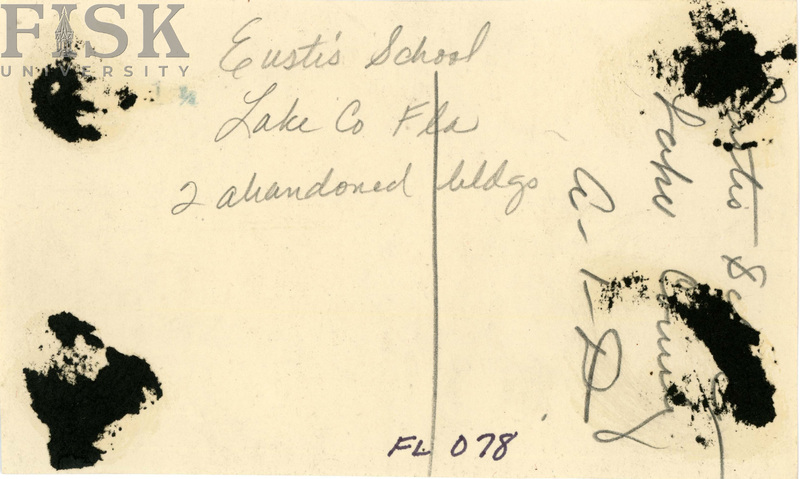 FISK
UNIVERSITY
Eustis School
Lake Co Fla
2 abandoned bldgs
Lake County
FL 078